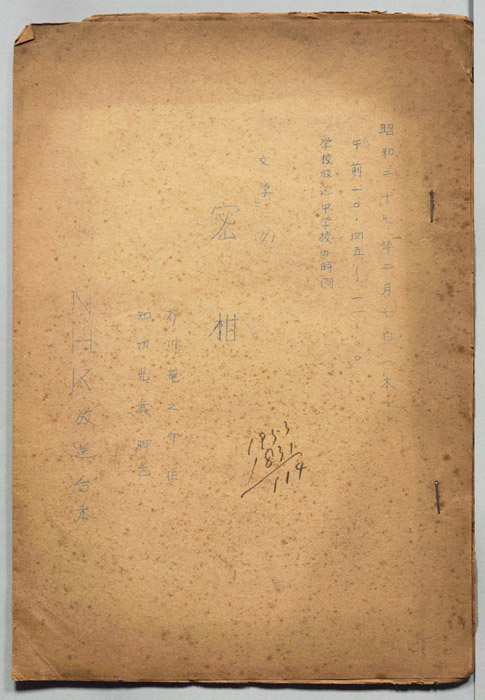 昭和二十七年二月七日(木)
午前一〇・四五〜一一・〇〇
学校放送中学校の時間
文学(1)
密柑
芥川竜之介作
知切光歳脚色
NHK放送台本
1953
1831
114